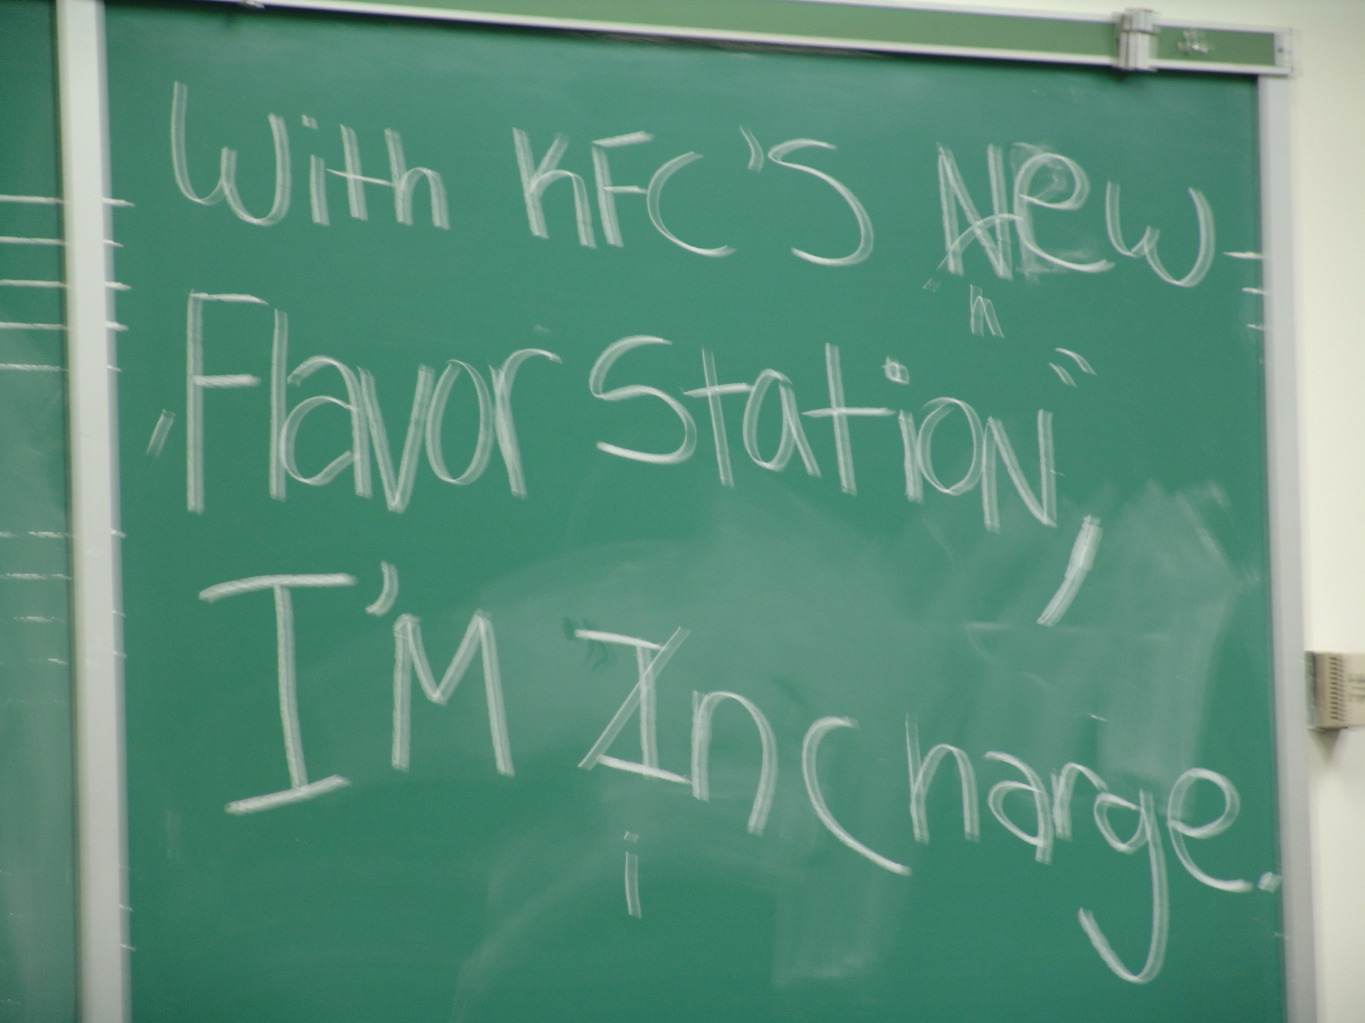 With KFC'S New
n
"Flavor Station",
I'M In charge.
i